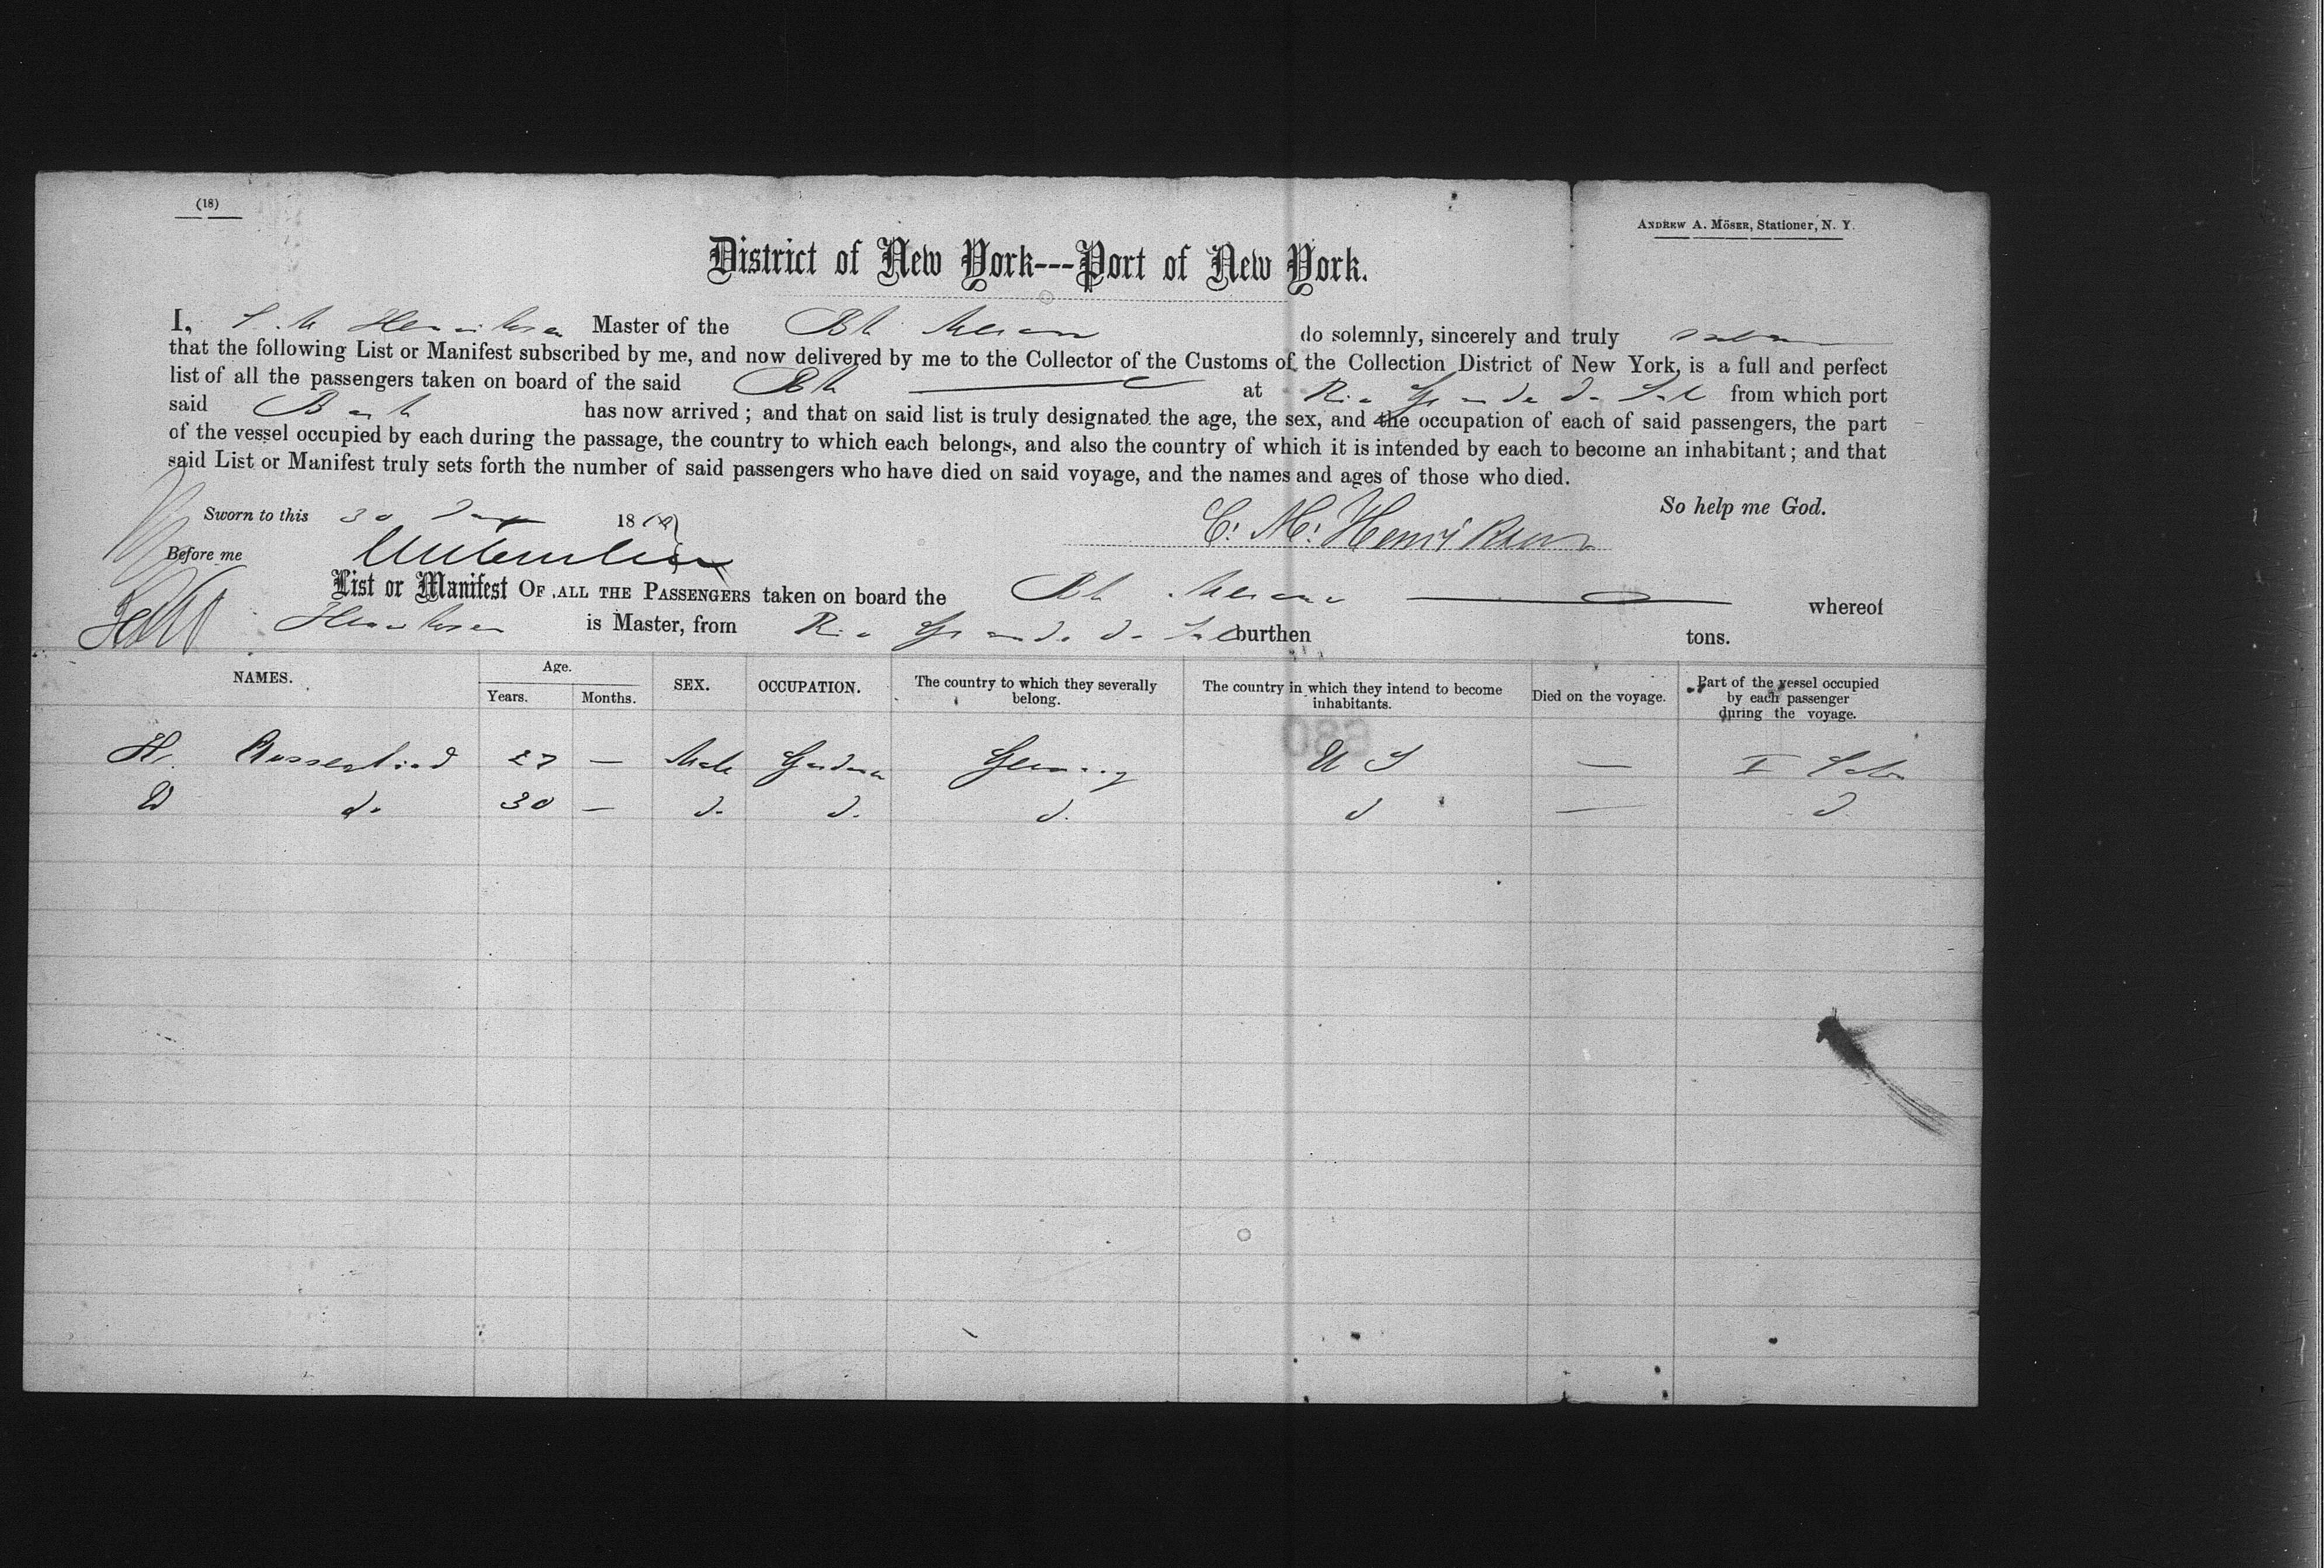 (18)
ANDREW A. MÖSER, Stationer, N. Y.
District of New York---Port of New York.
I, Henriksen Master of the Bk do solemnly, sincerely and truly
that the following List or Manifest subscribed by me, and now delivered by me to the Collector of the Customs of the Collection District of New York, is a full and perfect
list of all the passengers taken on board of the said Bk at Rio Grande do Sul from which port
said Bark has now arrived; and that on said list is truly designated the age, the sex, and the occupation of each of said passengers, the part
of the vessel occupied by each during the passage, the country to which each belongs, and also the country of which it is intended by each to become an inhabitant; and that
said List or Manifest truly sets forth the number of said passengers who have died on said voyage, and the names and ages of those who died.
So help me God.
Sworn to this 30 18
C. M. Henriksen
Before me
List or Manifest OF ALL THE PASSENGERS taken on board the Bk whereof
Henriksen is Master, from Rio Grande do Sul burthen tons.
NAMES. Age. Years. Months. SEX. OCCUPATION. The country to which they severally belong. The country in which they intend to become inhabitants. Died on the voyage. Part of the vessel occupied by each passenger during the voyage.
680
H. 27 — Male Germany U S — I
do 30 — do do do d — d